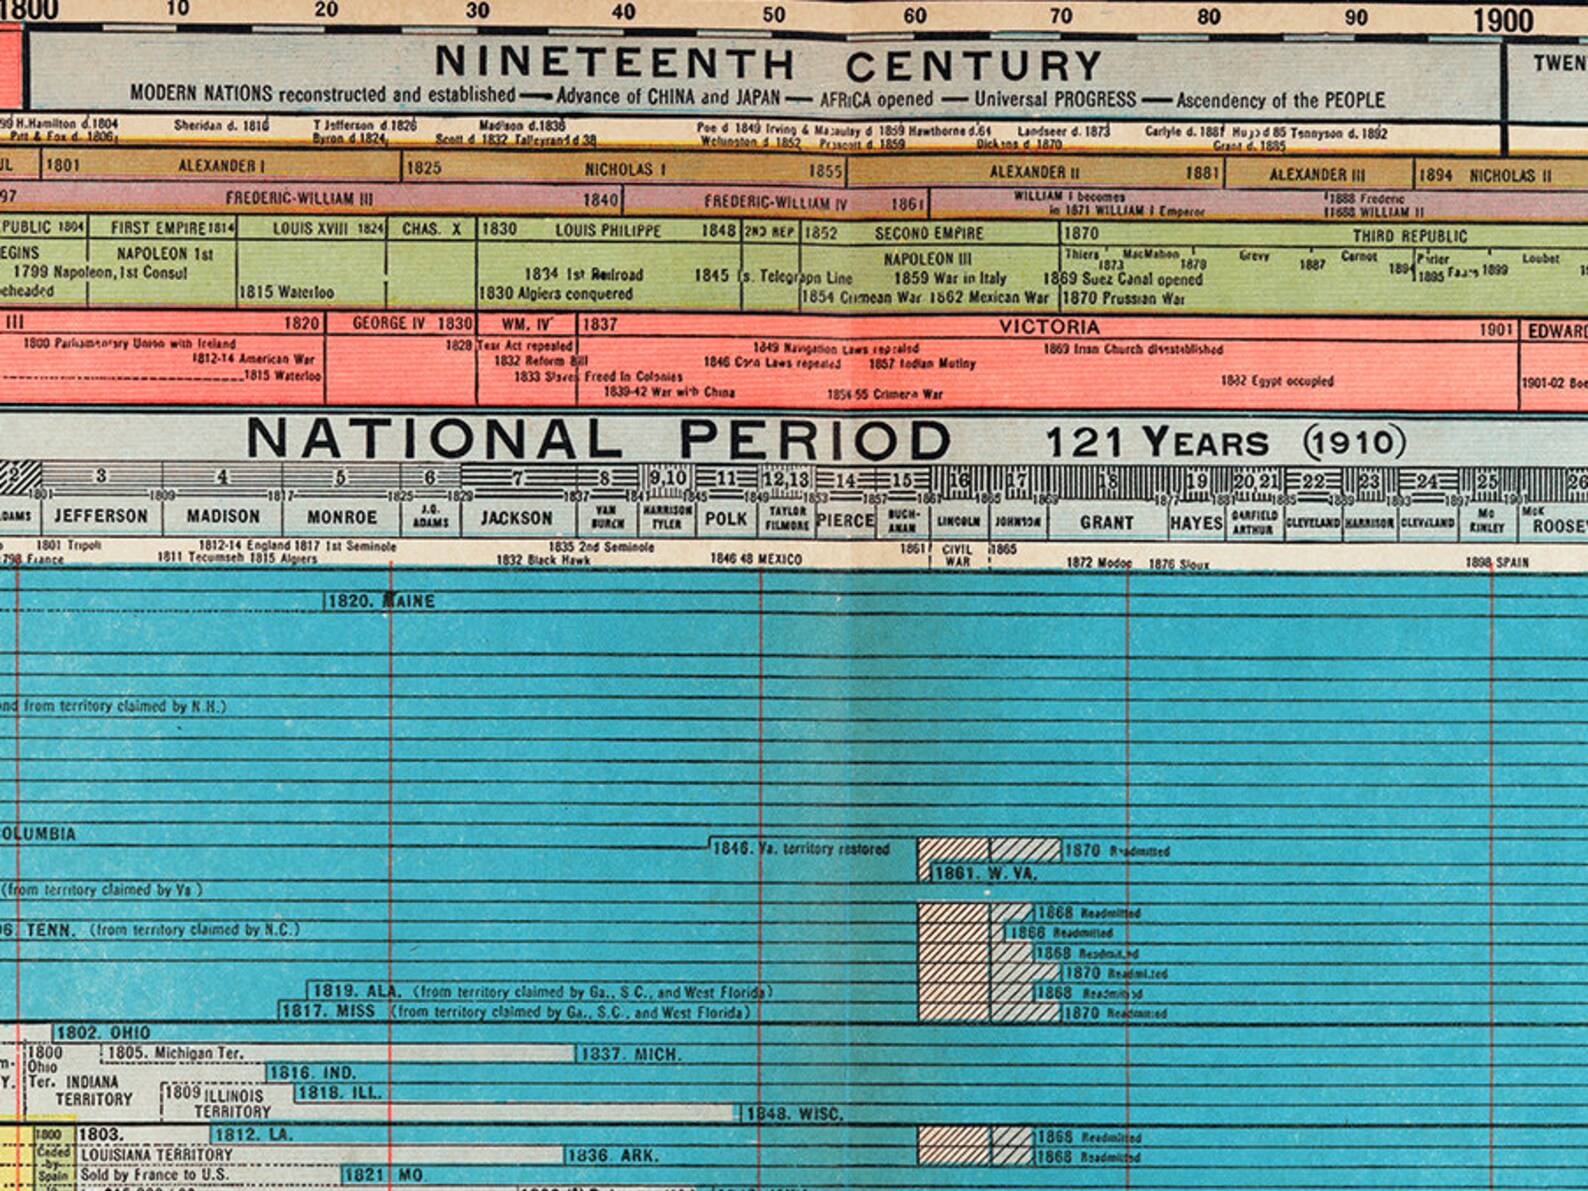 1800 10 20 30 40 50 60 70 80 90 1900
NINETEENTH CENTURY
TWEN
MODERN NATIONS reconstructed and established — Advance of CHINA and JAPAN — AFRICA opened — Universal PROGRESS — Ascendency of the PEOPLE
99 H.Hamilton d.1804 Sheridan d. 1816 T Jefferson d.1826 Madison d.1836 Poe d 1849 Irving & Macaulay d 1859 Hawthorne d.64 Landseer d. 1873 Carlyle d. 1881 Hugo d 85 Tennyson d. 1892
Pitt & Fox d. 1806 Byron d.1824 Scott d 1832 Talleyrand d 38 Wellington d 1852 Prescott d. 1859 Dickens d 1870 Grant d. 1885
UL 1801 ALEXANDER I 1825 NICHOLAS I 1855 ALEXANDER II 1881 ALEXANDER III 1894 NICHOLAS II
97 FREDERIC-WILLIAM III 1840 FREDERIC-WILLIAM IV 1861 WILLIAM I becomes 1888 Frederic
in 1871 WILLIAM I Emperor 1888 WILLIAM II
PUBLIC 1804 FIRST EMPIRE 1814 LOUIS XVIII 1824 CHAS. X 1830 LOUIS PHILIPPE 1848 2ND REP 1852 SECOND EMPIRE 1870 THIRD REPUBLIC
EGINS NAPOLEON 1st NAPOLEON III Thiers 1873 MacMahon 1879 Grevy 1887 Carnot 1894 Loubet
1799 Napoleon, 1st Consul 1834 1st Railroad 1845 Telegraph Line 1859 War in Italy 1869 Suez Canal opened 1895 1899
eheaded 1815 Waterloo 1830 Algiers conquered 1854 Crimean War 1862 Mexican War 1870 Prussian War
III 1820 GEORGE IV 1830 WM. IV 1837 VICTORIA 1901 EDWARD
1800 Parliamentary Union with Ireland 1828 Test Act repealed 1849 Navigation Laws repealed 1869 Irish Church disestablished
1812-14 American War 1832 Reform Bill 1846 Corn Laws repealed 1857 Indian Mutiny
1815 Waterloo 1833 Slaves Freed in Colonies 1882 Egypt occupied 1901-02 Boe
1839-42 War with China 1854-55 Crimean War
NATIONAL PERIOD 121 YEARS (1910)
2 3 4 5 6 7 8 9,10 11 12,13 14 15 16 17 18 19 20,21 22 23 24 25 26
1801 1809 1817 1825 1829 1837 1841 1845 1849 1853 1857 1861 1865 1869 1877 1881 1885 1889 1893 1897 1901
DAMS JEFFERSON MADISON MONROE J.Q. ADAMS JACKSON VAN BUREN HARRISON TYLER POLK TAYLOR FILMORE PIERCE BUCH-ANAN LINCOLN JOHNSON GRANT HAYES GARFIELD ARTHUR CLEVELAND HARRISON CLEVELAND Mc KINLEY McK ROOSE
1801 Tripoli 1812-14 England 1817 1st Seminole 1835 2nd Seminole 1861 CIVIL WAR 1865
798 France 1811 Tecumseh 1815 Algiers 1832 Black Hawk 1846 48 MEXICO 1872 Modoc 1876 Sioux 1898 SPAIN
1820. MAINE
nd from territory claimed by N.H.)
OLUMBIA
1846. Va. territory restored 1870 Readmitted
1861. W. VA.
(from territory claimed by Va)
1868 Readmitted
6. TENN. (from territory claimed by N.C.) 1866 Readmitted
1868 Readmitted
1870 Readmitted
1819. ALA. (from territory claimed by Ga., S C., and West Florida) 1868 Readmitted
1817. MISS (from territory claimed by Ga., S.C., and West Florida) 1870 Readmitted
1802. OHIO
1800 Ohio Ter. 1805. Michigan Ter. 1837. MICH.
1816. IND.
INDIANA TERRITORY 1809 ILLINOIS TERRITORY 1818. ILL.
1848. WISC.
1800 Ceded by Spain 1803. 1812. LA. 1868 Readmitted
LOUISIANA TERRITORY 1836. ARK. 1868 Readmitted
Sold by France to U.S. 1821 MO.